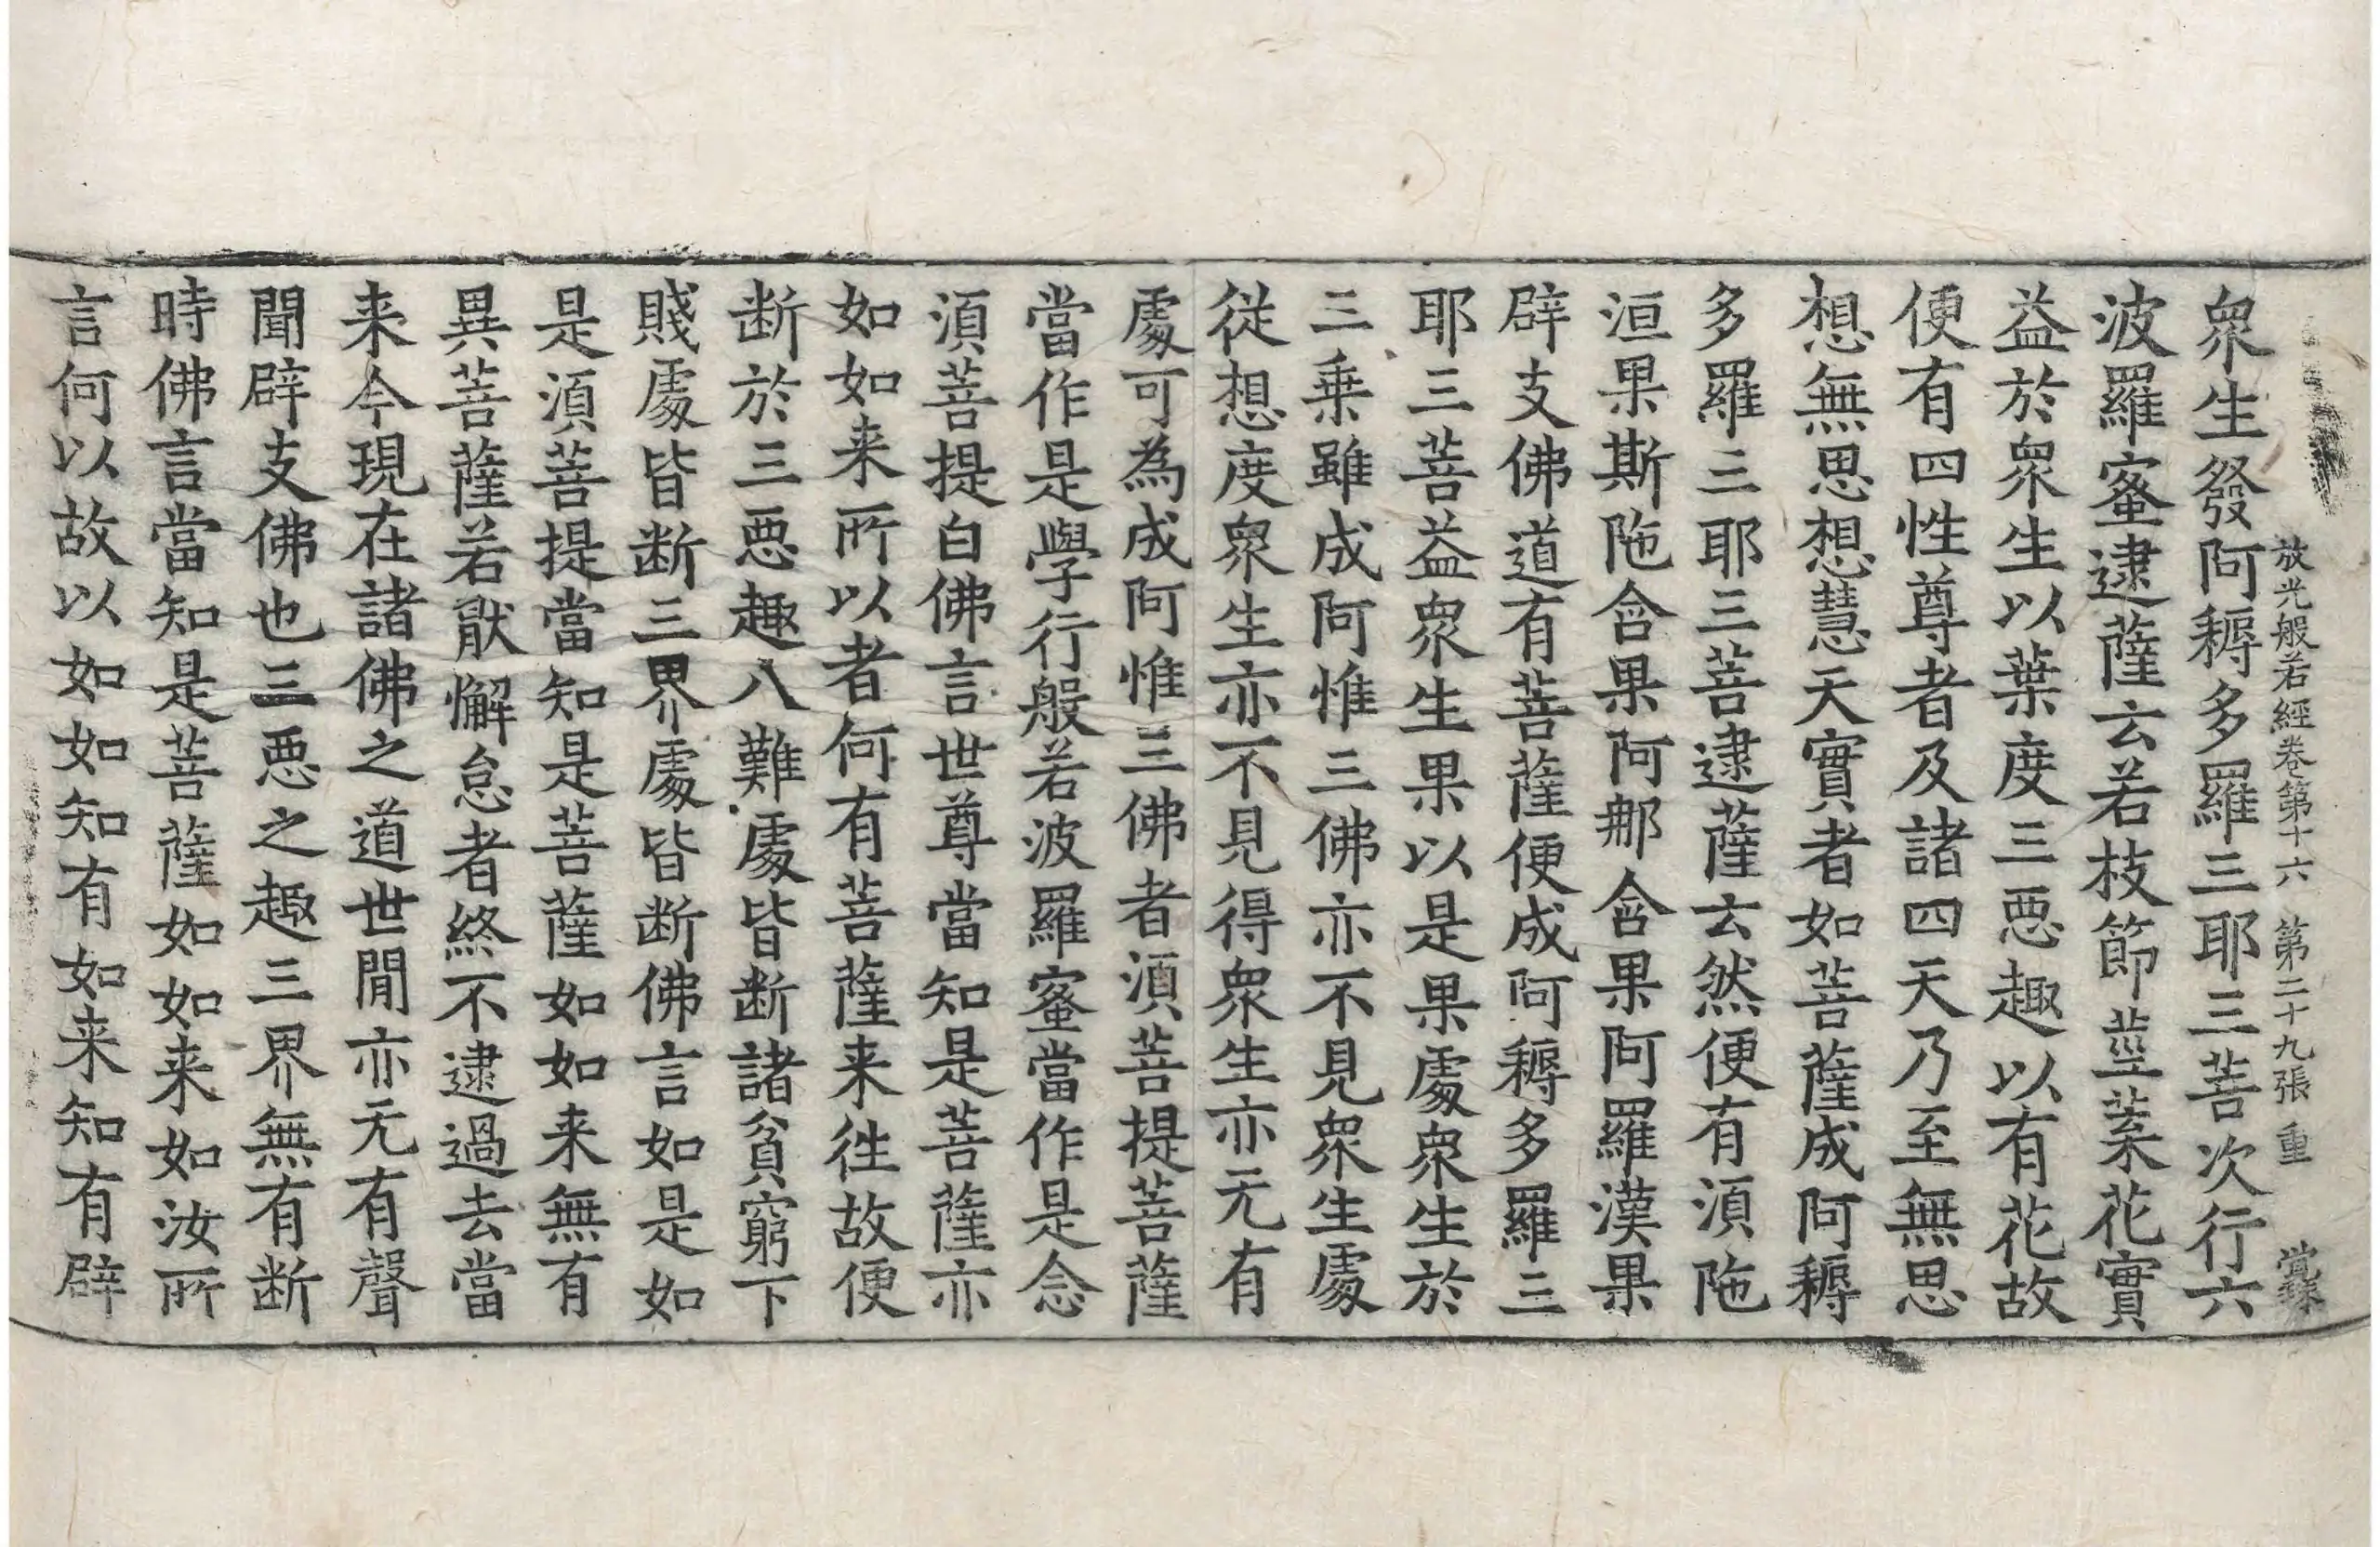 放光般若經卷第十六 第二十九張 重
衆生發阿耨多羅三耶三菩次行六
波羅蜜逮薩云若枝節莖葉花實
益於衆生以葉度三惡趣以有花故
便有四性尊者及諸四天乃至無思
想無思想慧天實者如菩薩成阿耨
多羅三耶三菩逮薩云然便有湏陁
洹果斯陁含果阿那含果阿羅漢果
辟支佛道有菩薩便成阿耨多羅三
耶三菩益衆生果以是果處衆生於
三乗雖成阿惟三佛亦不見衆生處
從想度衆生亦不見得衆生亦无有
處可為成阿惟三佛者湏菩提菩薩
當作是學行般若波羅蜜當作是念
湏菩提白佛言世尊當知是菩薩亦
如如来所以者何有菩薩来往故便
断於三惡趣八難處皆断諸貧窮下
賤處皆断三界處皆断佛言如是如
是湏菩提當知是菩薩如如来無有
異菩薩若猒懈怠者終不逮過去當
来今現在諸佛之道世間亦无有聲
聞辟支佛也三惡之趣三界無有断
時佛言當知是菩薩如如来如汝所
言何以故以如如知有如来知有辟